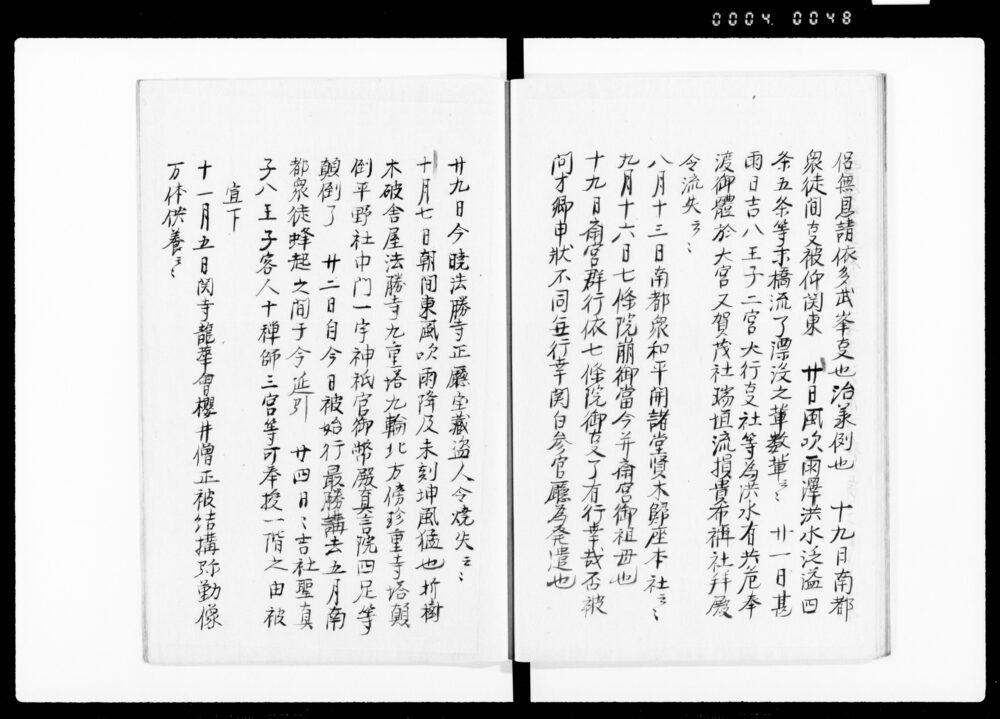 0004 0048
侶無息請依多武峯事也治承例也　十九日南都
衆徒間事被仰関東　廿日風吹雨澤洪水泛溢四
条五条等末橋流了漂没之輩数輩云々　廿一日甚
雨日吉八王子二宮大行事社等為洪水有其危奉
渡御體於大宮又賀茂社瑞垣流損貴布祢社拜殿
令流失云々
八月十三日南都衆和平開諸堂賢木歸座本社云々
九月十六日七條院崩御當今并斎宮御祖母也
十九日斎宮群行依七條院御事了有行幸哉否被
問才卿申状不同無行幸関白参官廳為発遣也
廿九日今暁法勝寺正廳宝蔵盗人令焼失云々
十月七日朝間東風吹雨降及未刻坤風猛也折樹
木破舎屋法勝寺九重塔九輪北方傍珍重寺塔顛
倒平野社中門一宇神祇官御幣殿真言院四足等
顛倒了　廿二日自今日被始行最勝講去五月南
都衆徒蜂起之間于今延引　廿四日日吉社聖真
子八王子客人十禅師三宮等可奉授一階之由被
宣下
十一月五日関寺龍華會櫻井僧正被結構弥勤像
万体供養云々